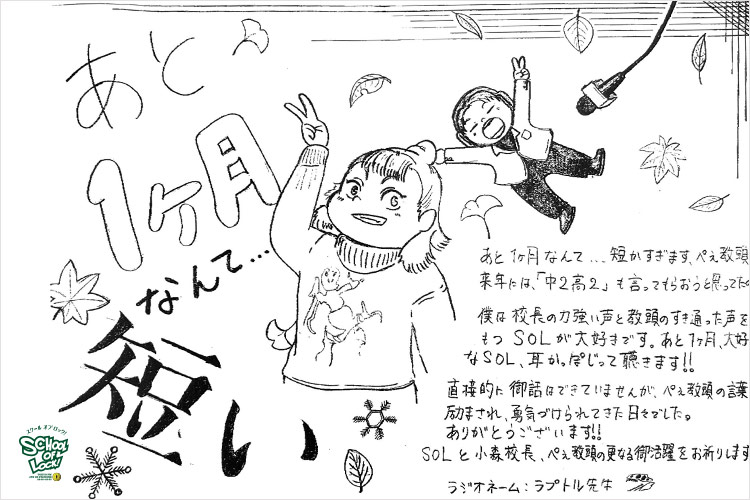 あと
1ヶ月
なんて…
短い
あと1ヶ月なんて…短かすぎます、ぺえ教頭
来年には、「中2高2」も言ってもらおうと思ってた
僕は校長の力強い声と教頭のすき通った声を
もつSOLが大好きです。あと1ヶ月、大好
なSOL、耳かっぽじって聴きます!!
直接的に御話はできていませんが、ぺえ教頭の言葉
励まされ、勇気づけられてきた日々でした。
ありがとうございます!!
SOLと小森校長、ぺえ教頭の更なる御活躍をお祈りします
ラジオネーム:ラプトル先生
スクール オブ ロック!
SCHOOL
OF
LOCK!